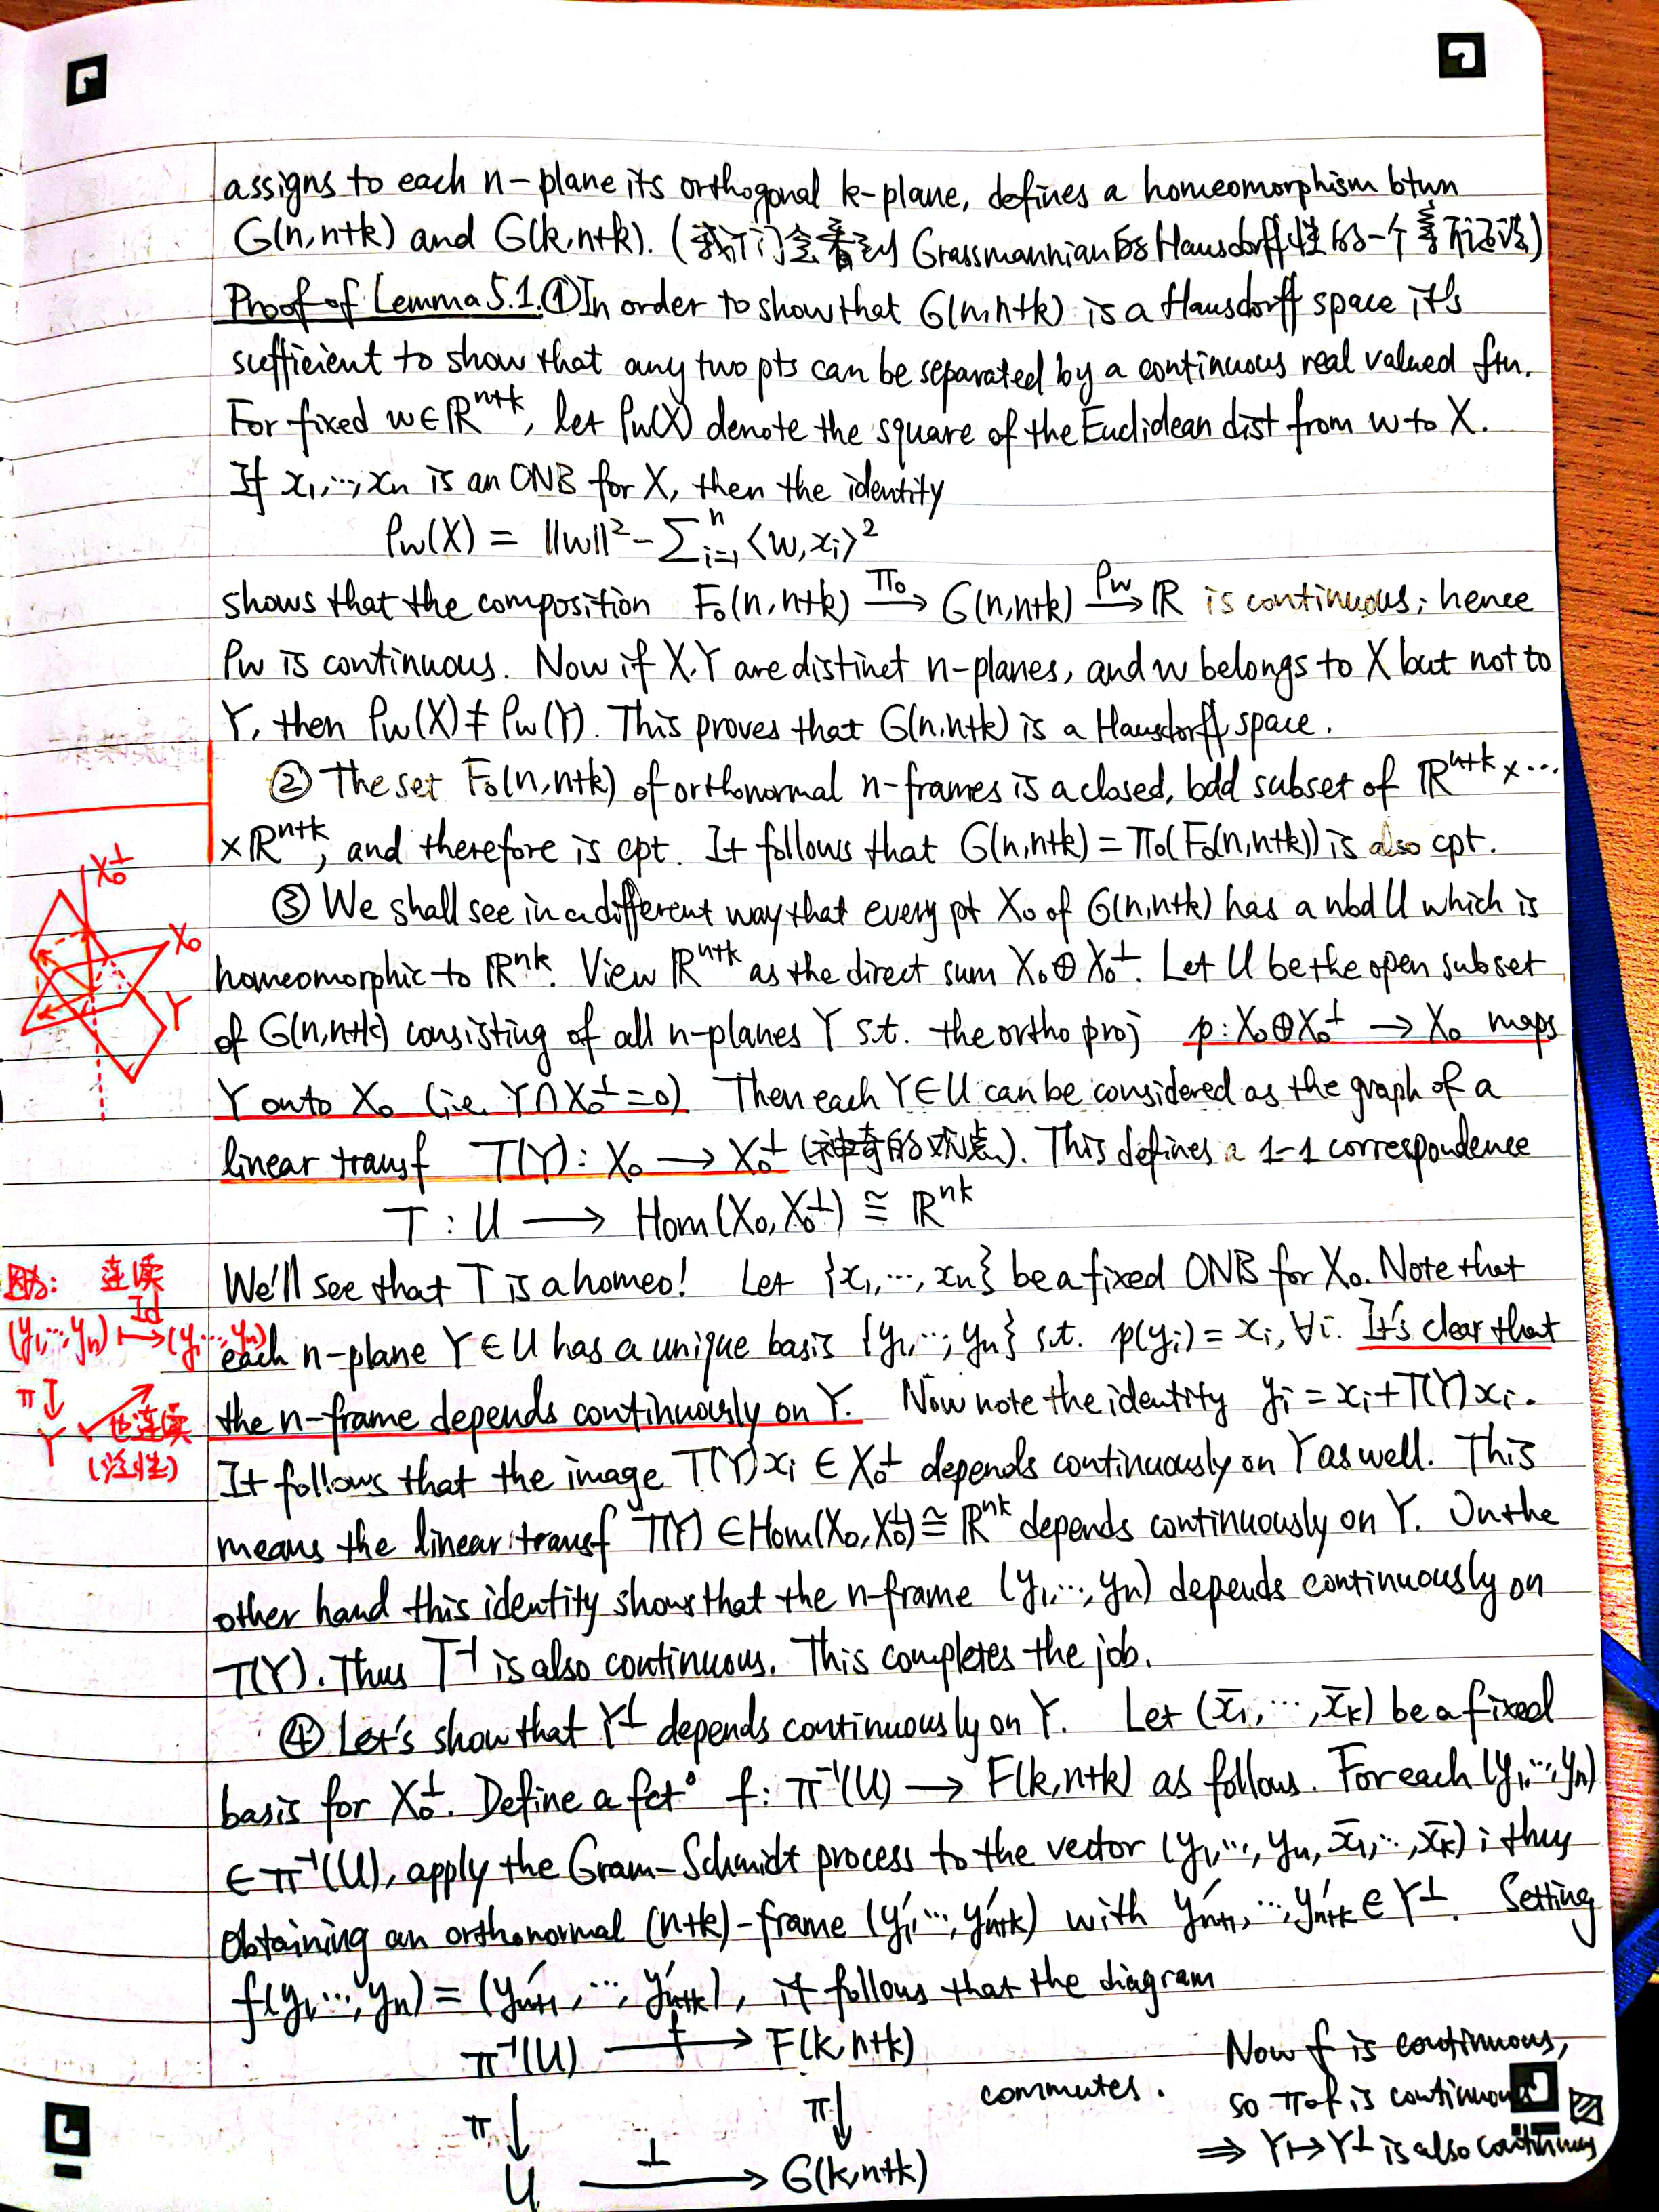 assigns to each n-plane its orthogonal k-plane, defines a homeomorphism btwn
G(n,n+k) and G(k,n+k). (我们会看到 Grassmannian的Hausdorff性的一个等价证法)
Proof of Lemma 5.1. ① In order to show that G(n,n+k) is a Hausdorff space it's
sufficient to show that any two pts can be separated by a continuous real valued ftn.
For fixed w∈ℝⁿ⁺ᵏ, let ρw(X) denote the square of the Euclidean dist from w to X.
If x₁,…,xn is an ONB for X, then the identity
ρw(X) = ||w||² - Σⁿᵢ₌₁ ⟨w,xᵢ⟩²
shows that the composition F₀(n,n+k) —π₀→ G(n,n+k) —ρw→ ℝ is continuous; hence
ρw is continuous. Now if X,Y are distinct n-planes, and w belongs to X but not to
Y, then ρw(X) ≠ ρw(Y). This proves that G(n,n+k) is a Hausdorff space.
② The set F₀(n,n+k) of orthonormal n-frames is a closed, bdd subset of ℝⁿ⁺ᵏ×…
×ℝⁿ⁺ᵏ, and therefore is cpt. It follows that G(n,n+k) = π₀(F₀(n,n+k)) is also cpt.
③ We shall see in a different way that every pt X₀ of G(n,n+k) has a nbd U which is
homeomorphic to ℝⁿᵏ. View ℝⁿ⁺ᵏ as the direct sum X₀⊕X₀^⊥. Let U be the open subset
of G(n,n+k) consisting of all n-planes Y s.t. the ortho proj p: X₀⊕X₀^⊥ → X₀ maps
Y onto X₀ (i.e. Y∩X₀^⊥=0). Then each Y∈U can be considered as the graph of a
linear transf T(Y): X₀ → X₀^⊥ (神奇的观点). This defines a 1-1 correspondence
T : U → Hom(X₀,X₀^⊥) ≅ ℝⁿᵏ
We'll see that T is a homeo! Let {x₁,…,xn} be a fixed ONB for X₀. Note that
each n-plane Y∈U has a unique basis {y₁,…,yn} s.t. p(yᵢ) = xᵢ, ∀i. It's clear that
the n-frame depends continuously on Y. Now note the identity yᵢ = xᵢ+T(Y)xᵢ.
It follows that the image T(Y)xᵢ ∈ X₀^⊥ depends continuously on Y as well. This
means the linear transf T(Y) ∈ Hom(X₀,X₀^⊥) ≅ ℝⁿᵏ depends continuously on Y. On the
other hand this identity shows that the n-frame (y₁,…,yn) depends continuously on
T(Y). Thus T⁻¹ is also continuous. This completes the job.
④ Let's show that Y^⊥ depends continuously on Y. Let (x̄₁,…,x̄k) be a fixed
basis for X₀^⊥. Define a fct° f: π⁻¹(U) → F(k,n+k) as follows. For each (y₁,…,yn)
∈ π⁻¹(U), apply the Gram-Schmidt process to the vector (y₁,…,yn,x̄₁,…,x̄k); thus
obtaining an orthonormal (n+k)-frame (y₁',…,y'n+k) with y'n+1,…,y'n+k ∈ Y^⊥. Setting
f(y₁,…,yn) = (y'n+1,…,y'n+k), it follows that the diagram
π⁻¹(U) —f→ F(k,n+k)
π↓ π↓ commutes.
U —⊥→ G(k,n+k)
Now f is continuous,
so π∘f is continuous
⇒ Y↦Y^⊥ is also continuous
X₀^⊥
X₀
Y
因为: 连续
Id
(y₁,…,yn) ↦ (y₁,…,yn)
π↓
Y ↙也连续
(泛性)